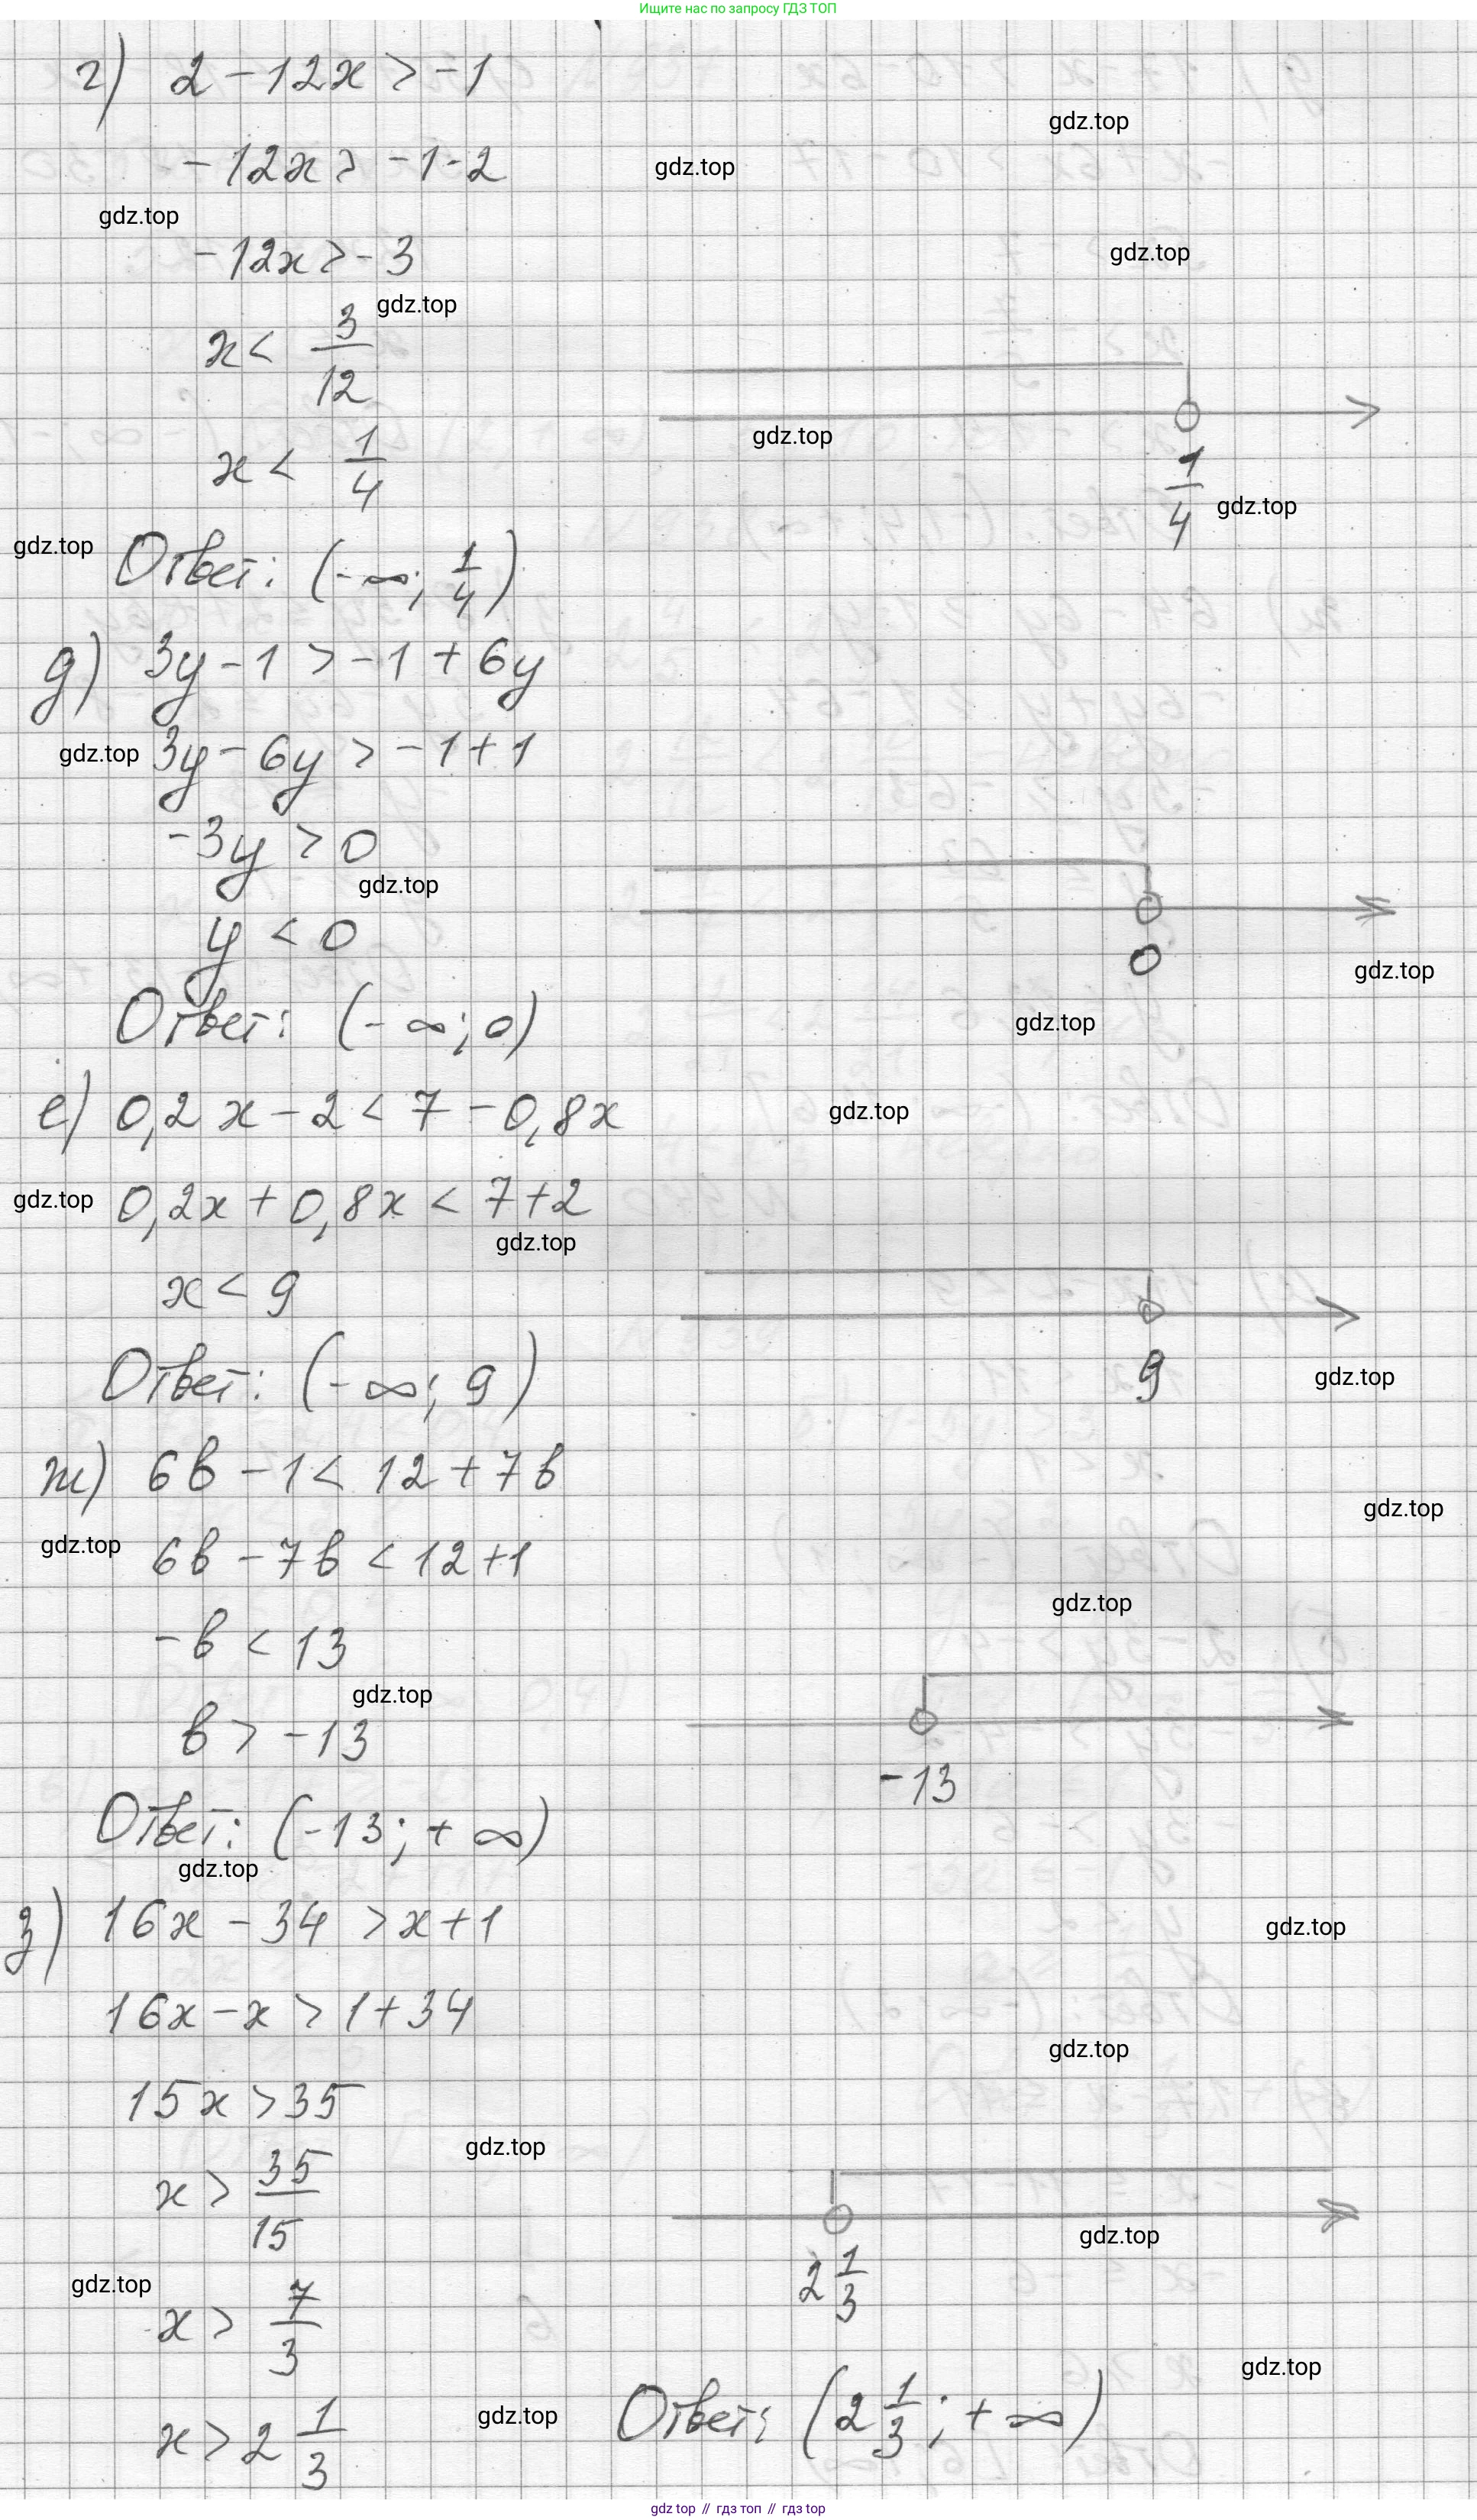 Ищите нас по запросу ГДЗ ТОП
г) 2 - 12x > -1
gdz.top
-12x > -1-2
gdz.top
gdz.top
-12x > -3
gdz.top
gdz.top
x < 3/12
gdz.top
x < 1/4
1/4
gdz.top
gdz.top
Ответ: (-∞; 1/4)
д) 3y - 1 > -1 + 6y
gdz.top
3y - 6y > -1 + 1
-3y > 0
gdz.top
y < 0
0
gdz.top
Ответ: (-∞; 0)
gdz.top
е) 0,2x - 2 < 7 - 0,8x
gdz.top
gdz.top
0,2x + 0,8x < 7+2
gdz.top
x < 9
9
gdz.top
Ответ: (-∞; 9)
ж) 6b - 1 < 12 + 7b
gdz.top
gdz.top
6b - 7b < 12 + 1
gdz.top
-b < 13
gdz.top
b > -13
-13
Ответ: (-13; +∞)
gdz.top
з) 16x - 34 > x + 1
gdz.top
16x - x > 1 + 34
gdz.top
15x > 35
gdz.top
x > 35/15
gdz.top
2 1/3
gdz.top
x > 7/3
gdz.top
x > 2 1/3
gdz.top
Ответ: (2 1/3; +∞)
gdz top // гдз топ // гдз top